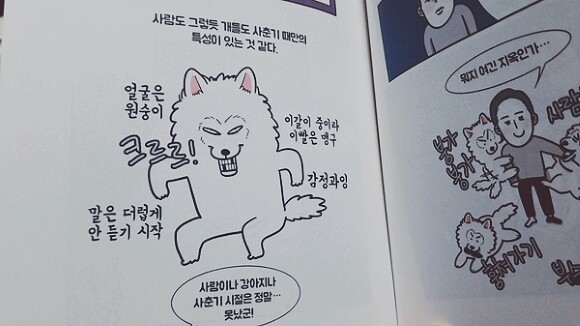 사람도 그렇듯 개들도 사춘기 때만의
특성이 있는 것 같다.
얼굴은
원숭이
이갈이 중이라
이빨은 맹구
크르르!
감정과잉
말은 더럽게
안 듣기 시작
사람이나 강아지나
사춘기 시절은 정말…
못났군!
뭐지 여긴 지옥인가…
붕가
붕가